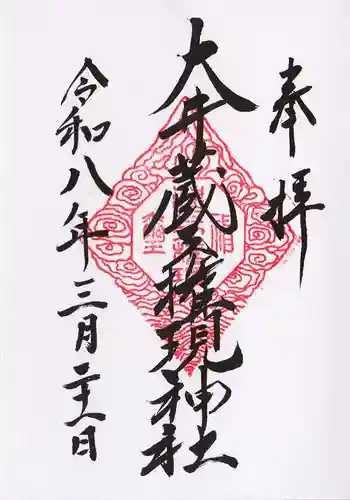 奉拝
大井蔵王権現神社
令和八年三月二十一日